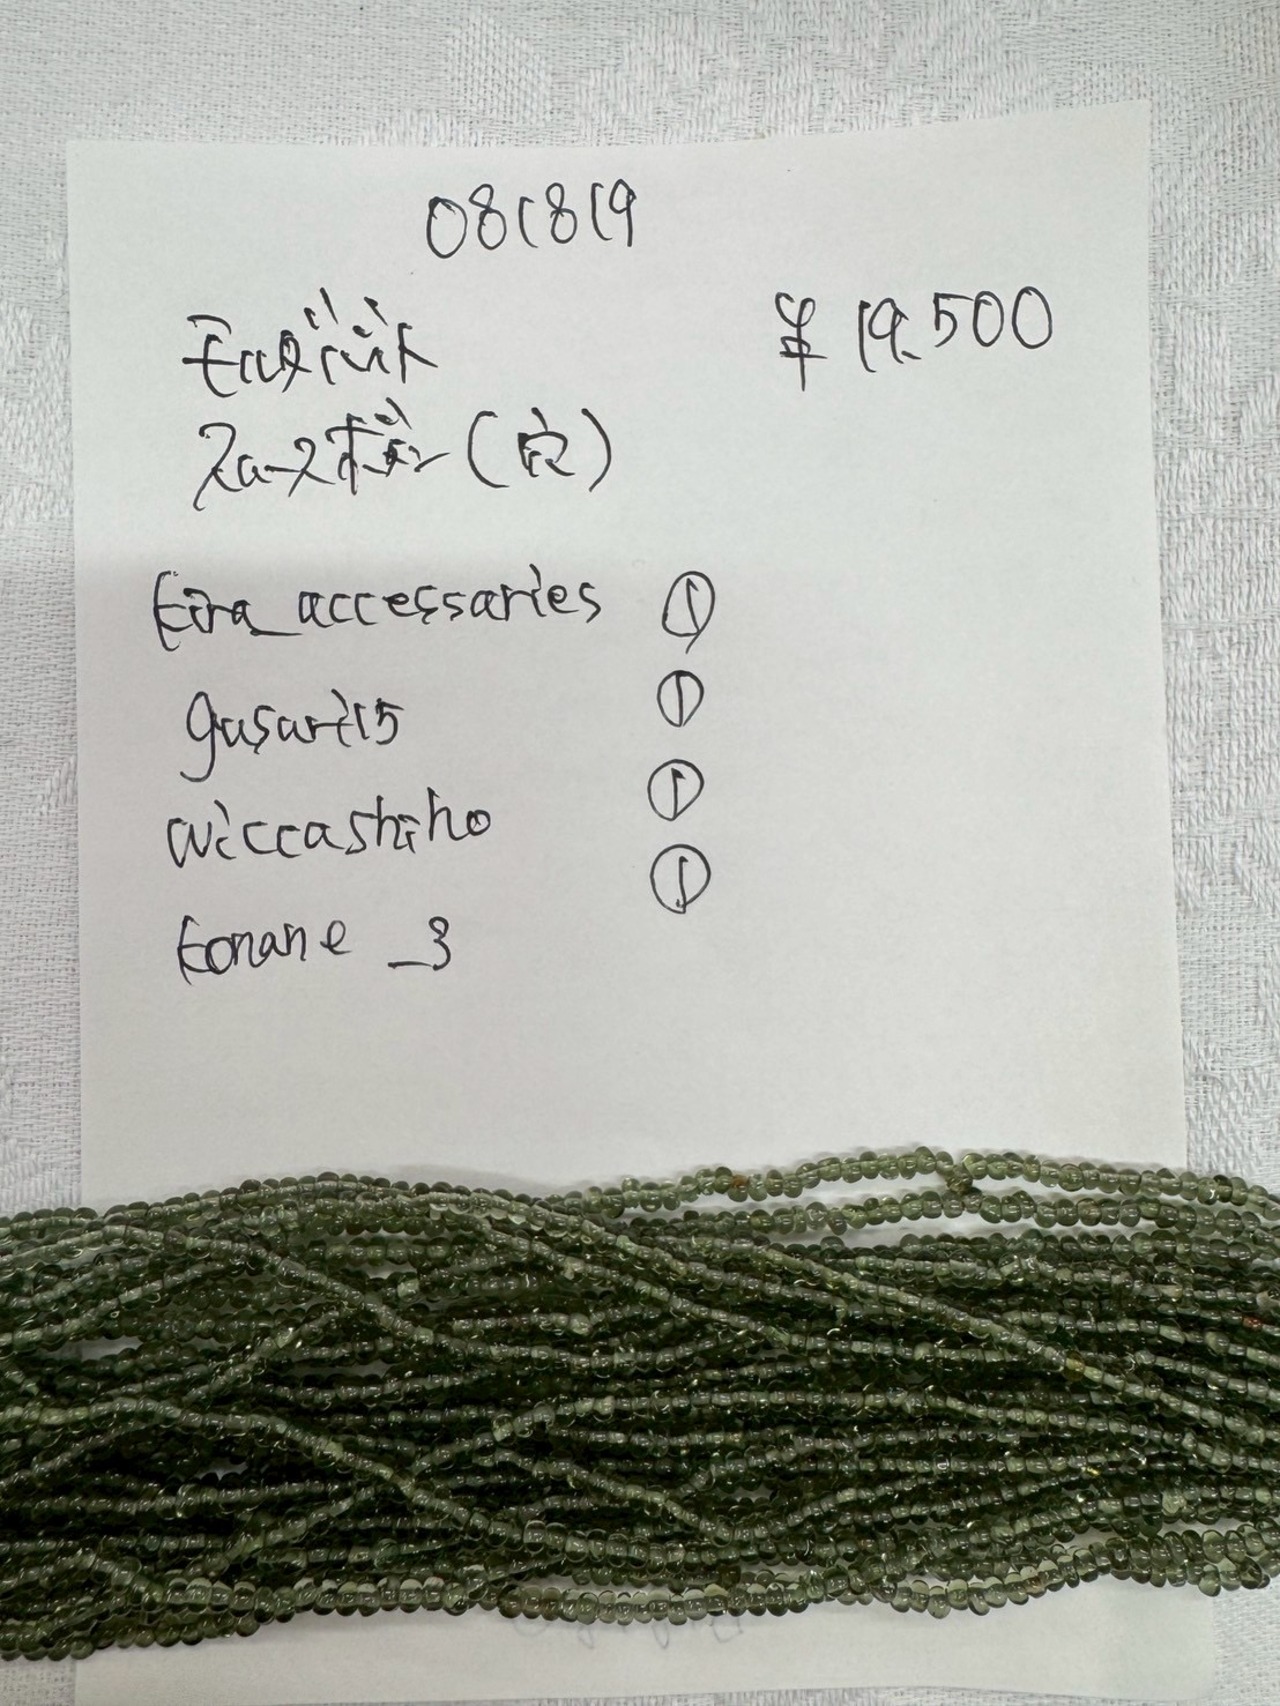 081819
モルダバイト ¥19.500
スムースボタン(良)
kira_accessaries ①
gusart15 ①
wiccashiho ①
konane_3 ①